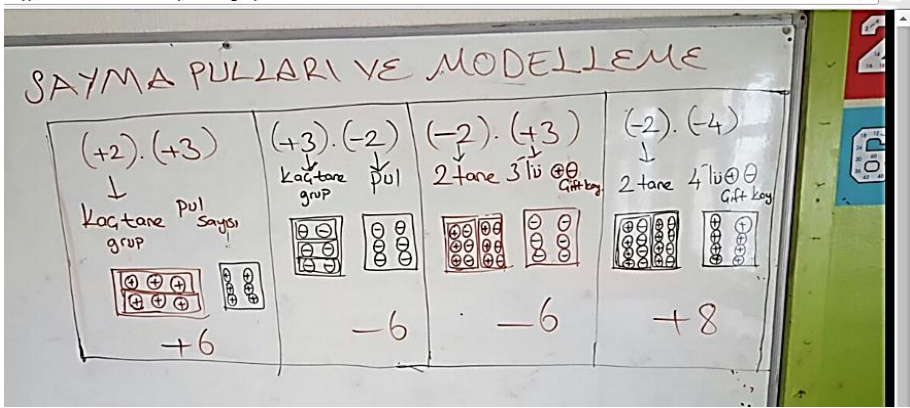 SAYMA PULLARI VE MODELLEME
(+2).(+3)
↓
Kaç tane grup
pul sayısı
⊕⊕⊕
⊕⊕⊕
+6
(+3).(-2)
↓ ↓
kaç tane grup
pul
⊖⊖
⊖⊖
⊖⊖
⊖⊖
⊖⊖
⊖⊖
-6
(-2).(+3)
↓ ↓
2 tane 3'lü ⊕⊖
Çift koy
⊕⊖ ⊕⊖
⊕⊖ ⊕⊖
⊕⊖ ⊕⊖
⊖⊖
⊖⊖
⊖⊖
-6
(-2).(-4)
↓
2 tane 4'lü ⊕⊖
Çift koy
⊕⊖ ⊕⊖
⊕⊖ ⊕⊖
⊕⊖ ⊕⊖
⊕⊖ ⊕⊖
⊕⊕
⊕⊕
⊕⊕
⊕⊕
+8